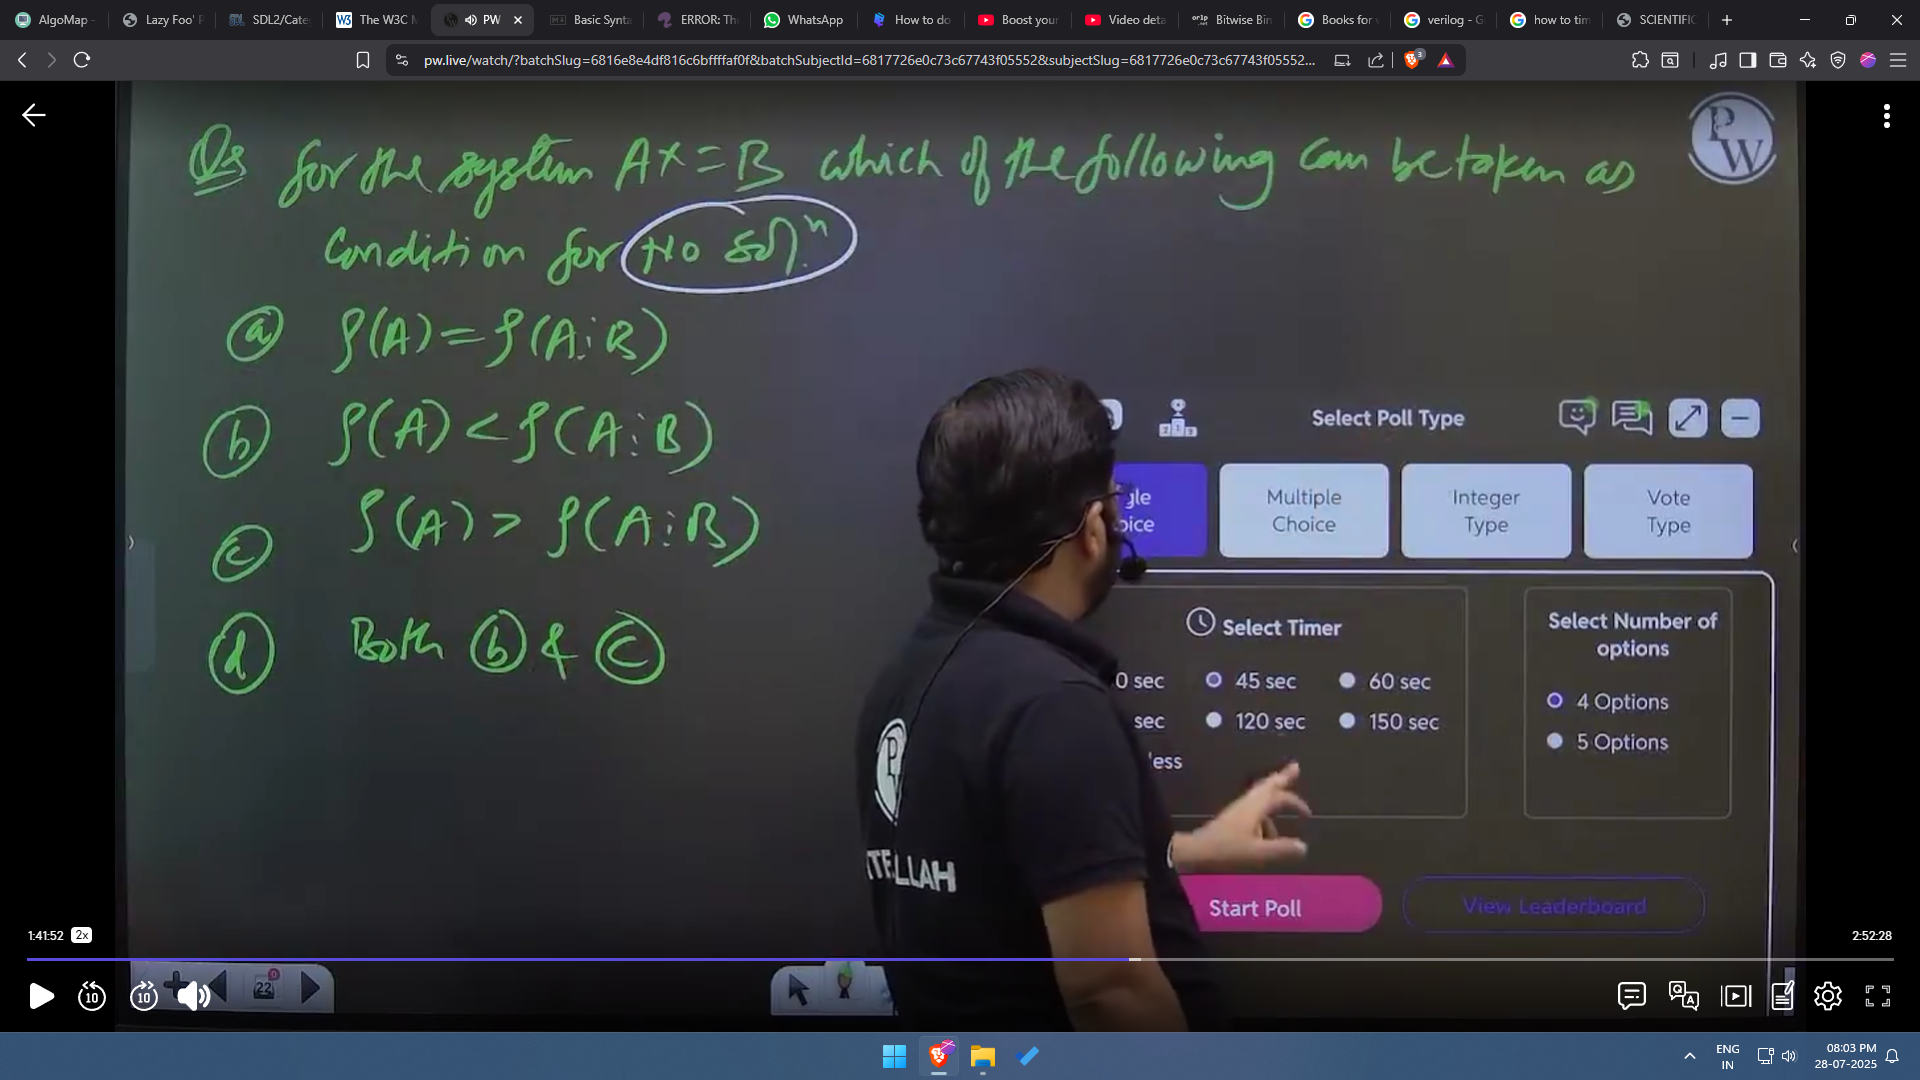 AlgoMap -
Lazy Foo' P
SDL2/Cate
The W3C M
PW
Basic Synta
ERROR: Th
WhatsApp
How to do
Boost your
Video deta
Bitwise Bin
Books for v
verilog - G
how to tim
SCIENTIFIC
pw.live/watch/?batchSlug=6816e8e4df816c6bffffaf0f&batchSubjectId=6817726e0c73c67743f05552&subjectSlug=6817726e0c73c67743f05552...
3
PW
Qs for the system AX=B which of the following can be taken as
Condition for No solⁿ.
(a) ρ(A) = ρ(A⋮B)
(b) ρ(A) < ρ(A⋮B)
(c) ρ(A) > ρ(A⋮B)
(d) Both (b) & (c)
Select Poll Type
Multiple Choice
Integer Type
Vote Type
Select Timer
45 sec
60 sec
sec
120 sec
150 sec
Select Number of options
4 Options
5 Options
Start Poll
View Leaderboard
1:41:52 2x
2:52:28
10
10
22
0
ENG
IN
08:03 PM
28-07-2025